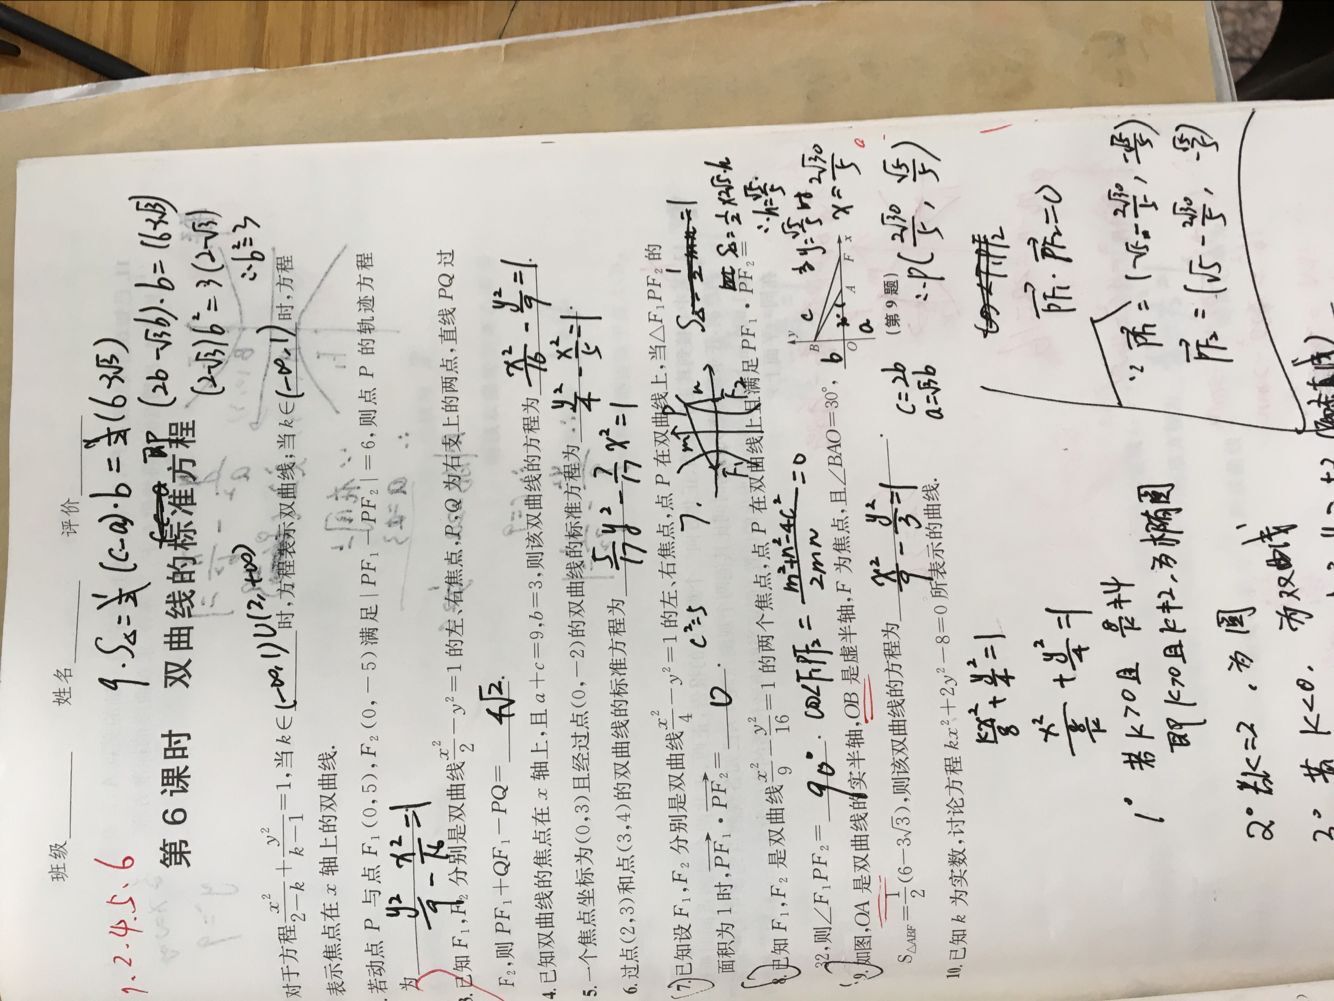 班级 姓名 评价
9. S△=½(c-a)·b=½(6-3√3)
1.2.4.5.6
第 6 课时 双曲线的标准方程
即
(2b-√3b)·b=(6-3√3)
(2-√3)b²=3(2-√3)
∴b²=3
对于方程x²/(2-k)+y²/(k-1)=1,当 k∈(-∞,1)∪(2,+∞)时,方程表示双曲线;当 k∈(-∞,1)时,方程
表示焦点在 x 轴上的双曲线.
若动点 P 与点 F₁(0,5),F₂(0,-5)满足|PF₁-PF₂|=6,则点 P 的轨迹方程
为 y²/9-x²/16=1
3.已知 F₁,F₂ 分别是双曲线x²/2-y²=1 的左、右焦点,P,Q 为右支上的两点,直线 PQ 过
F₂,则 PF₁+QF₁-PQ= 4√2.
4.已知双曲线的焦点在 x 轴上,且 a+c=9,b=3,则该双曲线的方程为 x²/16-y²/9=1.
5.一个焦点坐标为(0,3)且经过点(0,-2)的双曲线的标准方程为 y²/4-x²/5=1.
6.过点(2,3)和点(3,4)的双曲线的标准方程为 5/17y²-7/17x²=1
7.已知设 F₁,F₂ 分别是双曲线x²/4-y²=1 的左、右焦点,点 P 在双曲线上,当△F₁PF₂ 的
面积为 1 时,PF₁·PF₂= 0. c²=5
7.
∴h=√5/5.
当y=√5/5时
x=2√30/5
∴P(2√30/5,√5/5)
8.已知 F₁,F₂ 是双曲线x²/9-y²/16=1 的两个焦点,点 P 在双曲线上且满足 PF₁·PF₂=
32,则∠F₁PF₂= 90°. cos∠F₁PF₂=(m²+n²-4c²)/2mn=0
9.如图,OA 是双曲线的实半轴,OB 是虚半轴,F 为焦点,且∠BAO=30°,
S△ABF=½(6-3√3),则该双曲线的方程为 x²/9-y²/3=1.
c=2b
a=√3b
y B c b O a A F x
(第 9 题)
10.已知 k 为实数,讨论方程 kx²+2y²-8=0 所表示的曲线.
kx²/8+y²/4=1
x²/(8/k)+y²/4=1
1° 若k>0且8/k≠4
即k>0且k≠2,为椭圆
2° 若k=2,为圆
3° 若k<0, 为双曲线
PF₁·PF₂=0
∵PF₁=(-√5-2√30/5,-√5/5)
PF₂=(√5-2√30/5,-√5/5)